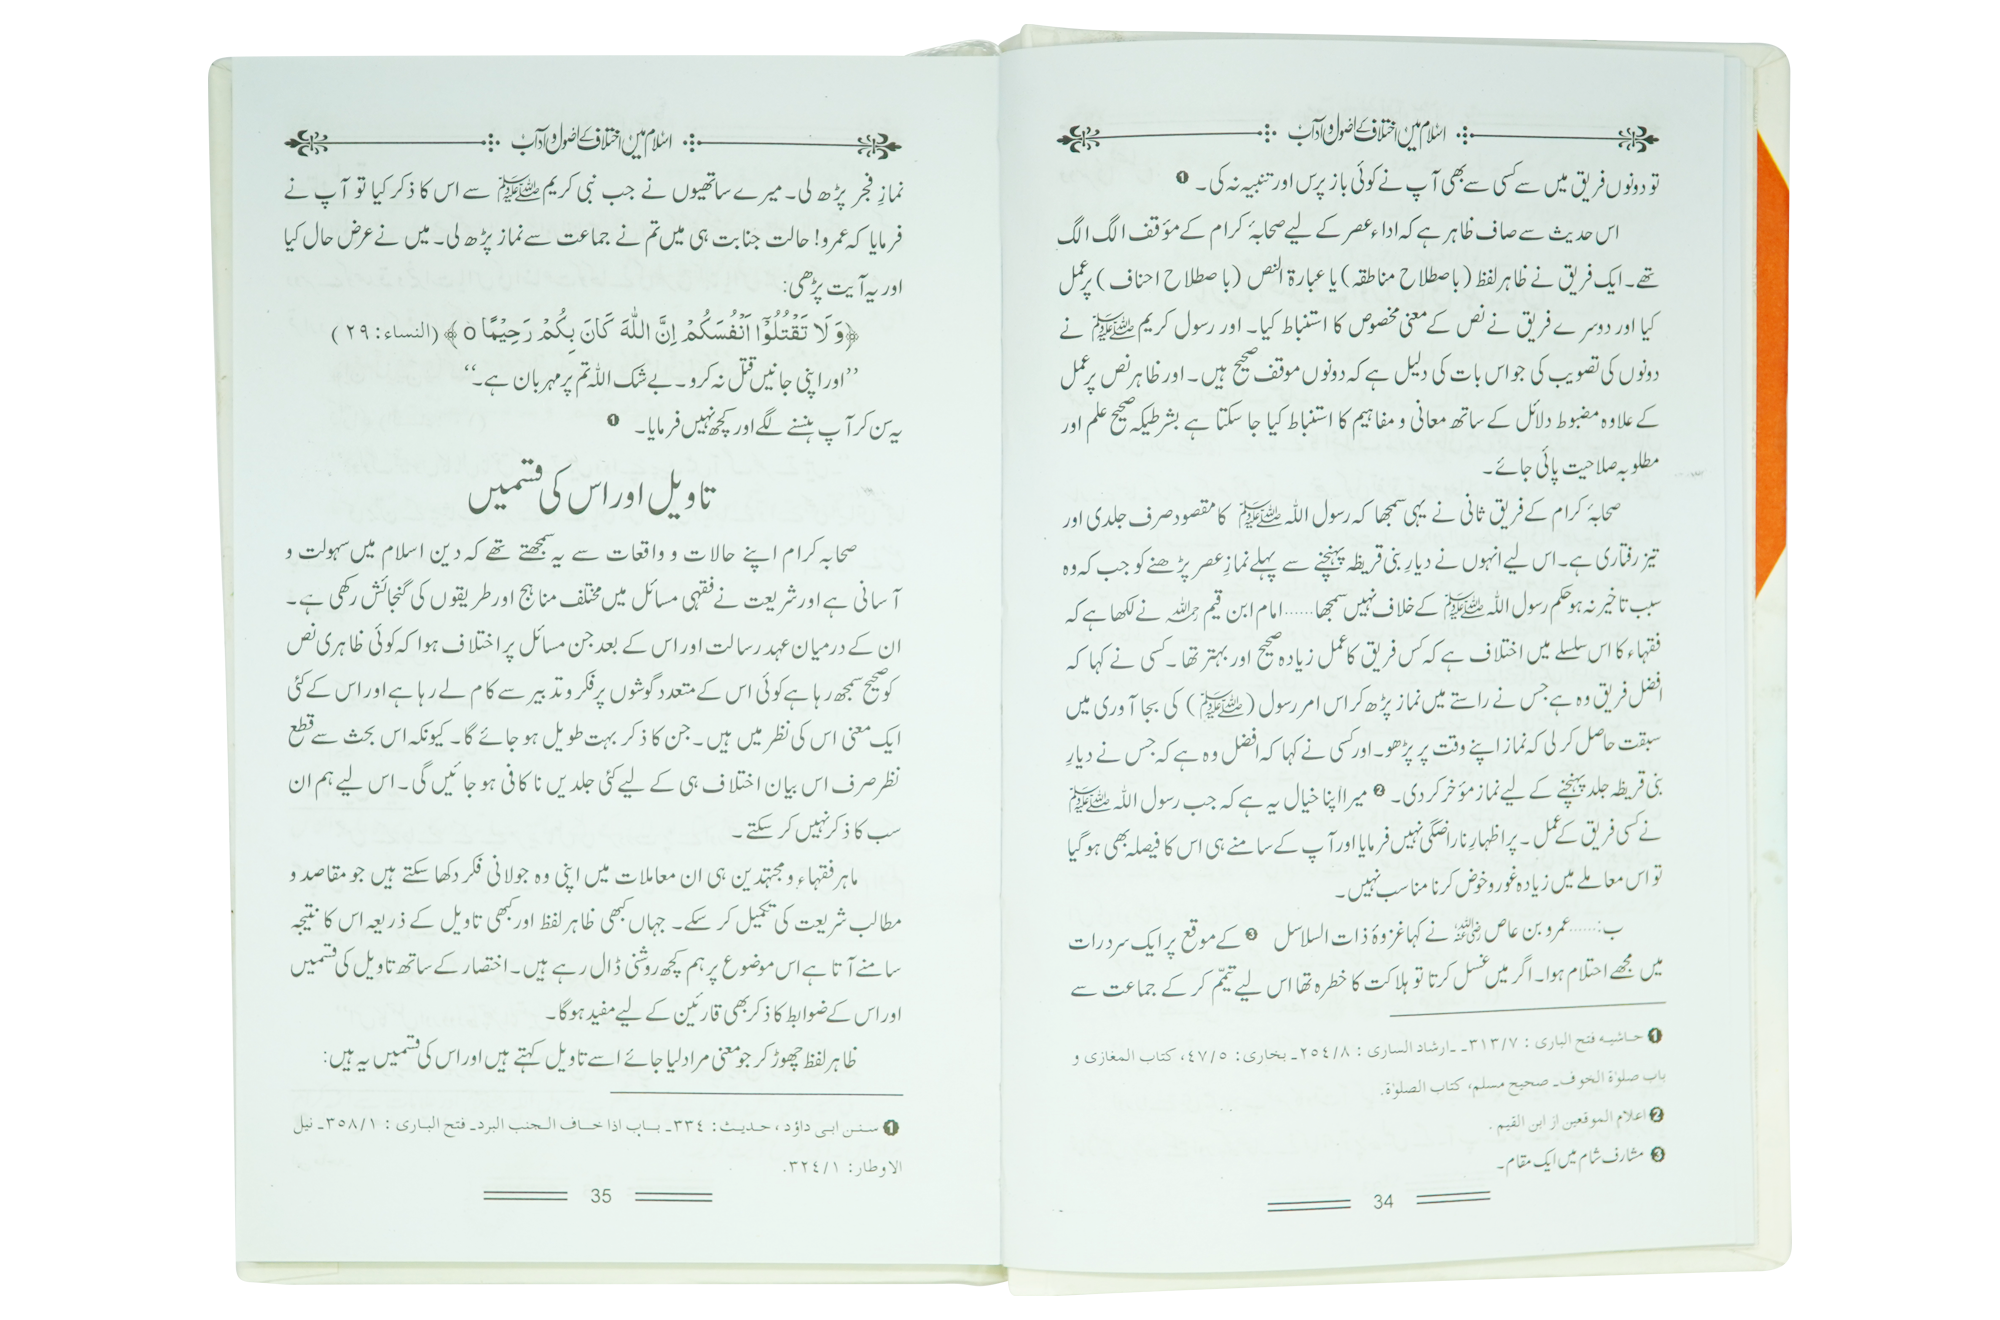 اسلام میں اختلاف کے اصول و آداب
تو دونوں فریق میں سے کسی سے بھی آپ نے کوئی باز پرس اور تنبیہ نہ کی۔ ❶
اس حدیث سے صاف ظاہر ہے کہ اداء عصر کے لیے صحابۂ کرام کے مؤقف الگ الگ
تھے۔ ایک فریق نے ظاہر لفظ (با صطلاح مناطقہ) یا عبارة النص (با صطلاح احناف) پر عمل
کیا اور دوسرے فریق نے نص کے معنی مخصوص کا استنباط کیا۔ اور رسول کریم ﷺ نے
دونوں کی تصویب کی جو اس بات کی دلیل ہے کہ دونوں موقف صحیح ہیں۔ اور ظاہر نص پر عمل
کے علاوہ مضبوط دلائل کے ساتھ معانی و مفاہیم کا استنباط کیا جا سکتا ہے بشرطیکہ صحیح علم اور
مطلوبہ صلاحیت پائی جائے۔
صحابۂ کرام کے فریق ثانی نے یہی سمجھا کہ رسول اللہ ﷺ کا مقصود صرف جلدی اور
تیز رفتاری ہے۔ اس لیے انہوں نے دیارِ بنی قریظہ پہنچنے سے پہلے نمازِ عصر پڑھنے کو جب کہ وہ
سبب تاخیر نہ ہو حکم رسول اللہ ﷺ کے خلاف نہیں سمجھا......امام ابن قیم رحمہ اللہ نے لکھا ہے کہ
فقہاء کا اس سلسلے میں اختلاف ہے کہ کس فریق کا عمل زیادہ صحیح اور بہتر تھا۔ کسی نے کہا کہ
افضل فریق وہ ہے جس نے راستے میں نماز پڑھ کر اس امر رسول (ﷺ) کی بجا آوری میں
سبقت حاصل کر لی کہ نماز اپنے وقت پر پڑھو۔ اور کسی نے کہا کہ افضل وہ ہے کہ جس نے دیارِ
بنی قریظہ جلد پہنچنے کے لیے نماز مؤخر کر دی۔ ❷ میرا اپنا خیال یہ ہے کہ جب رسول اللہ ﷺ
نے کسی فریق کے عمل۔ پر اظہارِ ناراضگی نہیں فرمایا اور آپ کے سامنے ہی اس کا فیصلہ بھی ہو گیا
تو اس معاملے میں زیادہ غور و خوض کرنا مناسب نہیں۔
ب:......عمرو بن عاص رضی اللہ عنہ نے کہا غزوۂ ذات السلاسل ❸ کے موقع پر ایک سرد رات
میں مجھے احتلام ہوا۔ اگر میں غسل کرتا تو ہلاکت کا خطرہ تھا اس لیے تیمّم کر کے جماعت سے
❶ حاشیہ فتح الباری : ۳۱۳/۷۔ ۔ارشاد الساری : ۲۵٤/۸۔ بخاری: ٤۷/۵، کتاب المغازی و
باب صلوٰة الخوف۔ صحیح مسلم، کتاب الصلوٰة.
❷ اعلام الموقعین از ابن القیم .
❸ مشارف شام میں ایک مقام۔
34
اسلام میں اختلاف کے اصول و آداب
نمازِ فجر پڑھ لی۔ میرے ساتھیوں نے جب نبی کریم ﷺ سے اس کا ذکر کیا تو آپ نے
فرمایا کہ عمرو! حالت جنابت ہی میں تم نے جماعت سے نماز پڑھ لی۔ میں نے عرض حال کیا
اور یہ آیت پڑھی:
﴿وَلَا تَقْتُلُوْٓا اَنْفُسَكُمْ اِنَّ اللّٰهَ كَانَ بِكُمْ رَحِيْمًا o﴾ (النساء: ۲۹)
’’اور اپنی جانیں قتل نہ کرو۔ بے شک اللہ تم پر مہربان ہے۔‘‘
یہ سن کر آپ ہنسنے لگے اور کچھ نہیں فرمایا۔ ❶
تاویل اور اس کی قسمیں
صحابہ کرام اپنے حالات و واقعات سے یہ سمجھتے تھے کہ دین اسلام میں سہولت و
آسانی ہے اور شریعت نے فقہی مسائل میں مختلف مناہج اور طریقوں کی گنجائش رکھی ہے۔
ان کے درمیان عہد رسالت اور اس کے بعد جن مسائل پر اختلاف ہوا کہ کوئی ظاہری نص
کو صحیح سمجھ رہا ہے کوئی اس کے متعدد گوشوں پر فکر و تدبیر سے کام لے رہا ہے اور اس کے کئی
ایک معنی اس کی نظر میں ہیں۔ جن کا ذکر بہت طویل ہو جائے گا۔ کیونکہ اس بحث سے قطع
نظر صرف اس بیان اختلاف ہی کے لیے کئی جلدیں ناکافی ہو جائیں گی۔ اس لیے ہم ان
سب کا ذکر نہیں کر سکتے۔
ماہر فقہاء و مجتہدین ہی ان معاملات میں اپنی وہ جولانی فکر دکھا سکتے ہیں جو مقاصد و
مطالب شریعت کی تکمیل کر سکے۔ جہاں کبھی ظاہر لفظ اور کبھی تاویل کے ذریعہ اس کا نتیجہ
سامنے آتا ہے اس موضوع پر ہم کچھ روشنی ڈال رہے ہیں۔ اختصار کے ساتھ تاویل کی قسمیں
اور اس کے ضوابط کا ذکر بھی قارئین کے لیے مفید ہوگا۔
ظاہر لفظ چھوڑ کر جو معنی مراد لیا جائے اسے تاویل کہتے ہیں اور اس کی قسمیں یہ ہیں:
❶ سنن ابی داؤد ، حدیث: ۳۳٤۔ باب اذا خاف الجنب البرد۔ فتح الباری : ۳۵۸/۱۔ نیل
الاوطار: ۳۲٤/۱.
35